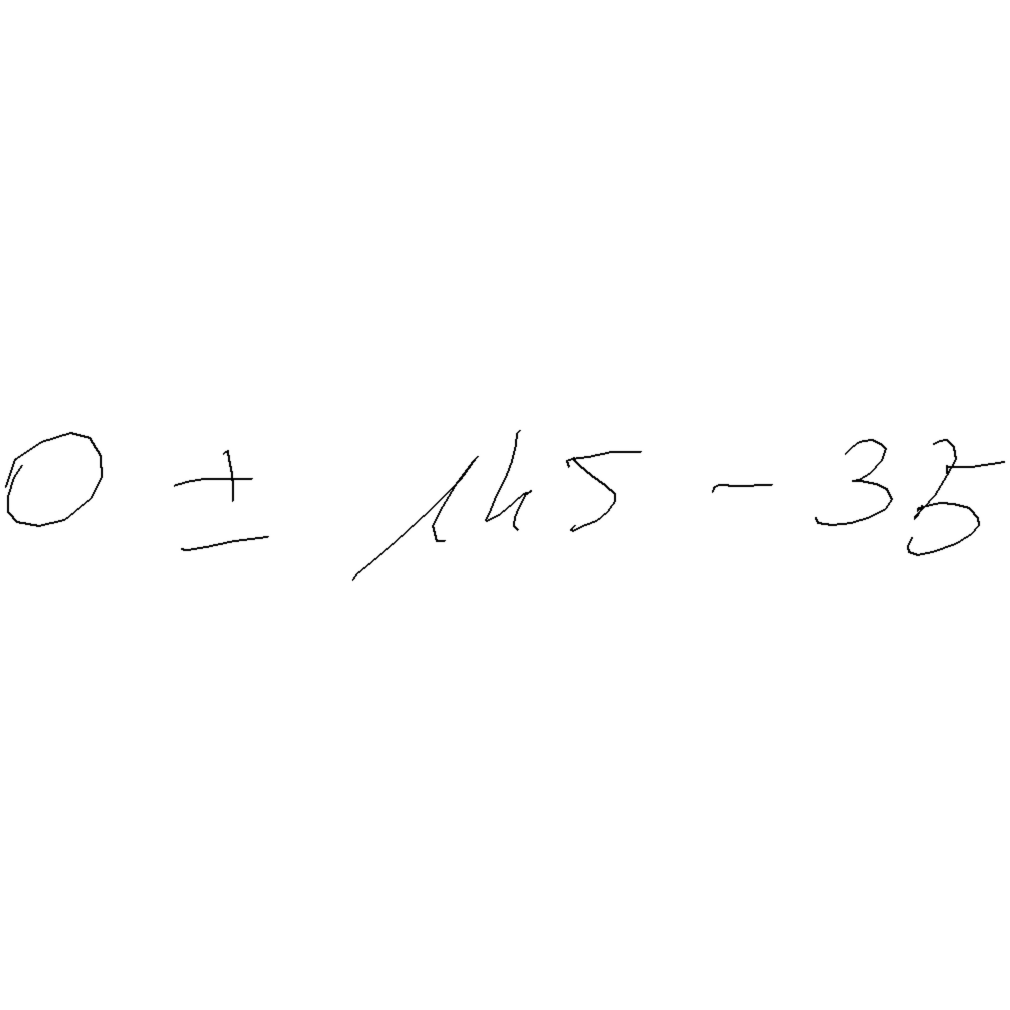 0 ± 145 - 35